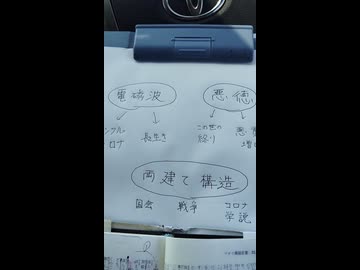 電磁波
悪徳
ンフル
ロナ
長生き
この世の
終り
悪
増
両建て構造
国会
戦争
コロナ
学説